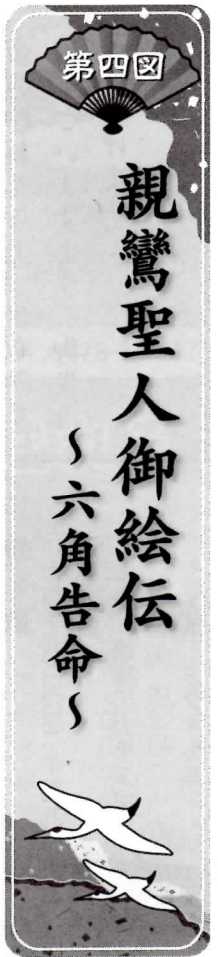 第四図
親鸞聖人御絵伝
～六角告命～